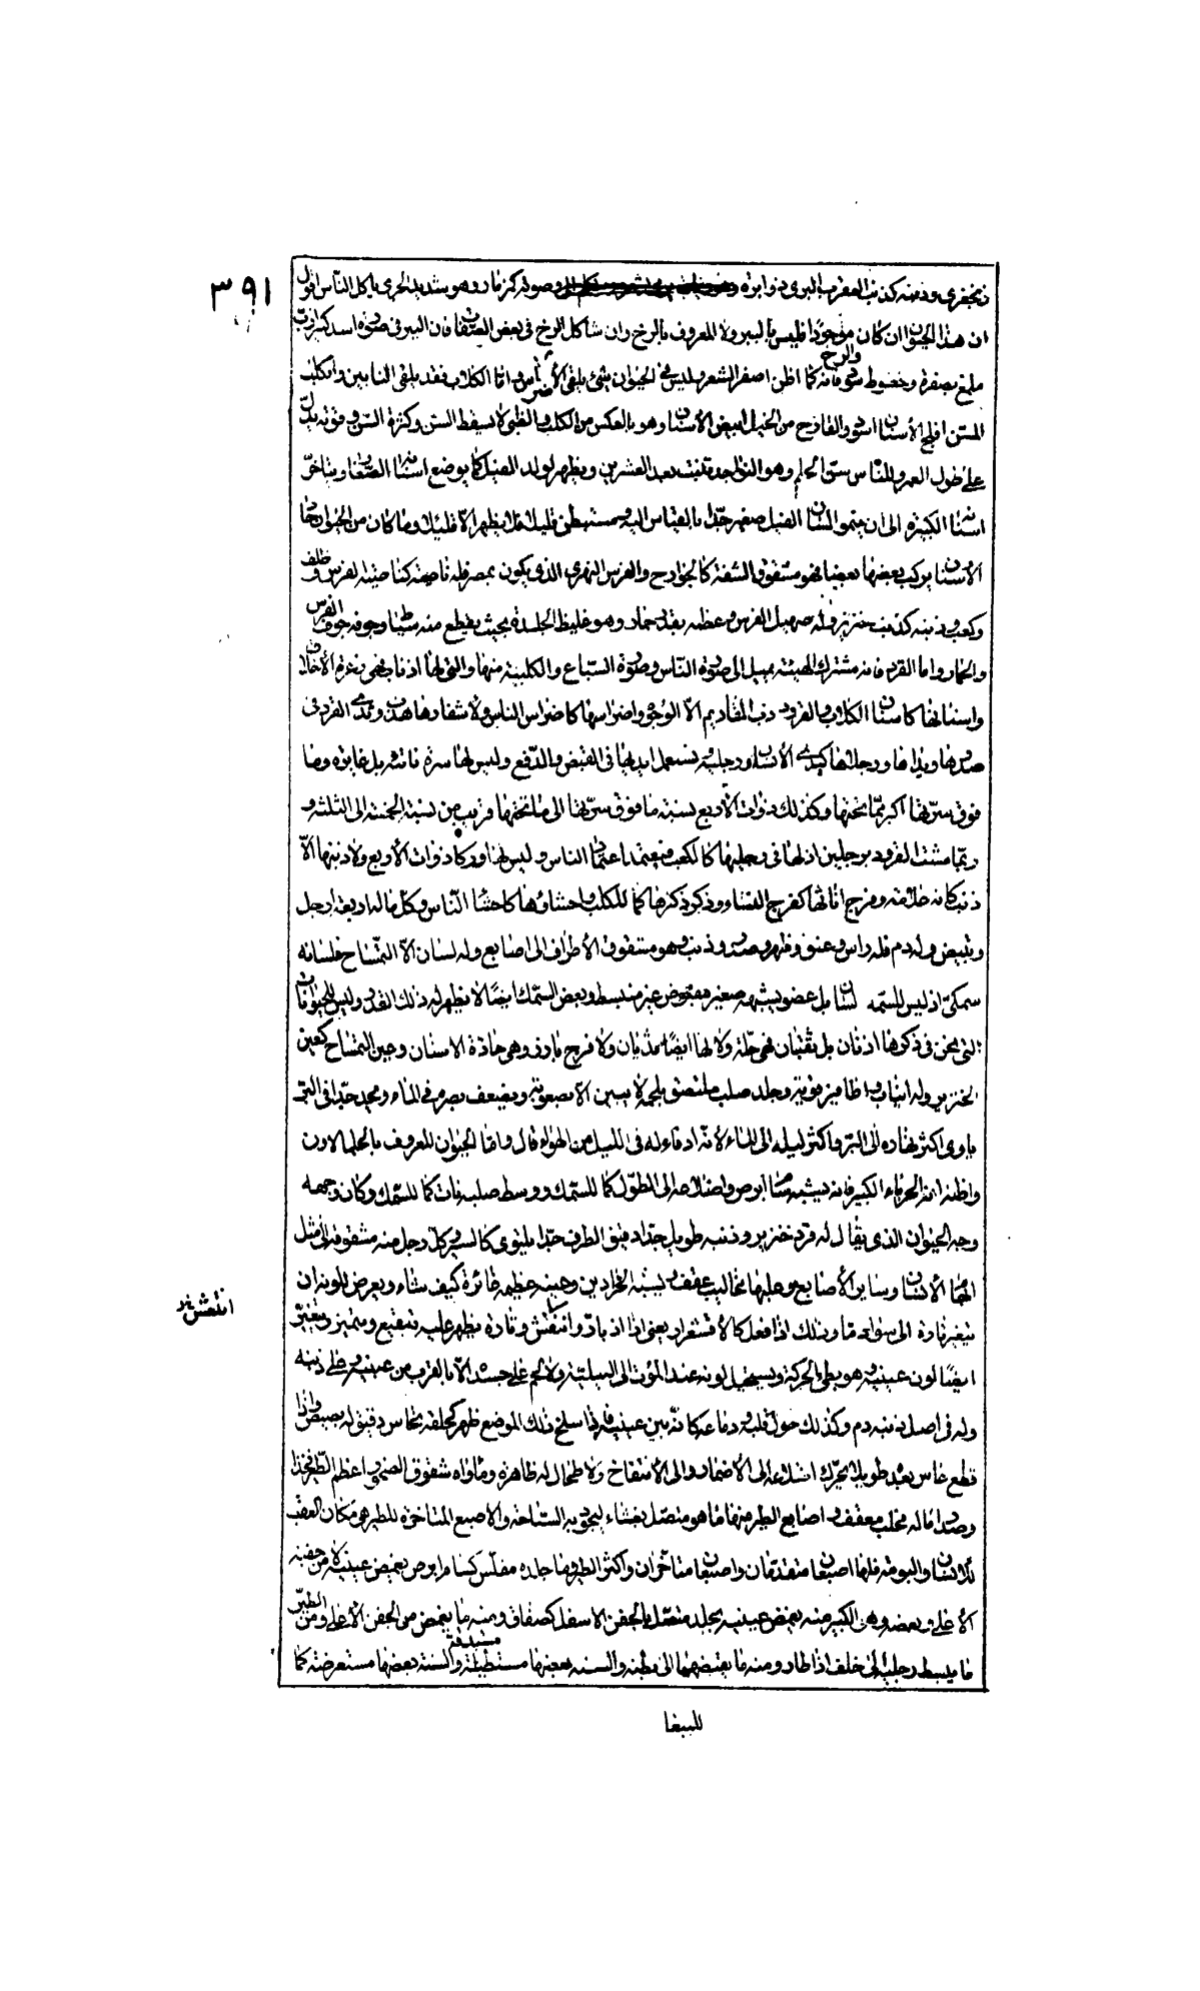 ٣٩١
زنجفري وذنبه كذنب العقرب البري ذو ابرة وصوته كزمار وهو شديد الجري ياكل الناس اقول
ان هذا الحيوان ان كان موجودا فليس بالببر ولا المعروف بالرخ وان شاكل الرخ في بعض الصفات فان الببر في صورة اسد كبير ازب
ملمع بصفرة وخطوط سود والرخ فانه كما اظن اصفر الشعر وليس في الحيوان شئ يلقى الاضراس واما الكلاب فقد يلقى النابين والكلب
المسن افلج الأسنان اسود والقارح من الخيل ابيض الأسنان وهو بالعكس من الكلب والظبى لا يسقط السن وكثرة السن وقوته يدل
على طول العمر وللناس سن الحلم وهو النواجد تنبت بعد العشرين ويظهر لولد الفيل كما يوضع اسنانه الصغار ويتاخر
اسنانه الكبيرة الى ان ينمو ولسان الفيل صغير جدا بالقياس اليه ومستبطن قليلا فلا يظهر الا قليلا وما كان من الحيوان حاد
الأسنان يركب بعضها بعضا فهو مشقوق الشفة كالجوارح والفرس النهري الذي يكون بمصر فله ناصية كناصية الفرس وظلف
وكعب وذنبه كذنب خنزير وله صهيل الفرس وعظمه بقدر حمار وهو غليظ الجلدة بحيث يقطع منه وجوفه جوف الفرس
والحمار واما القرد فانه مشترك الهيئة يميل الى صورة الناس وصورة السباع والكلبية منها والتي لها اذناب فهي زعرة الأخلاق
واسنانها كاسنان الكلاب والقرود زب المقاديم الا الوجوه واضراسها كاضراس الناس ولاشفارها هدب وثدي القرد في
صدرها ويداها ورجلاها كيدي الأنسان ورجليه تستعمل ايديها في القبض والدفع وليس لها سرة ناتئة بل غايرة وما
فوق سرتها اكبر مما تحتها وكذلك ذوات الأربع نسبة ما فوق سرتها الى ما تحتها قريب من نسبة الخمسة الى الثلثة و
ربما مشت القرود برجلين اذ لها في رجليها كالكعب فيعتمد اعتماد الناس وليس لها ورك كذوات الأربع ولا ذنب لها الا
ذنب كانه علامة وفرج اناثها كفرج النساء وذكر ذكرها كما للكلب واحشاؤها كاحشاء الناس وكل ماله اربعة ارجل
ويبيض وله دم فله راس وعنق وظهر وصدر وذنب وهو مشقوق الأطراف الى اصابع وله لسان الا التمساح فلسانه
سمكي اذ ليس للسمك لسان بل عضو يشبهه صغير مقبوض غير منبسط وبعض السمك ايضا لا يظهر له ذلك القدر وليس للحيوانات
التي نحن في ذكرها اذنان بل ثقبان فهي خلة ولا لها ايضا ثديان ولا فرج بارز وهي حادة الاسنان وعين التمساح كعين
الخنزير وله انياب واظافير قوية وجلد صلب ملتصق بلحمه لا يبين الا بصعوبة ويضعف بصره في الماء ويحد جدا في البر
ياوى اكثر نهاره الى البر واكثر ليله الى الماء لانه ادفاء له في الليل من الهواء قال واما الحيوان المعروف بالحمالاون
واظنه انه الحرباء الكبير فانه يشبه سام ابوص واضلاعه الى الطول كما للسمك ووسط صلبه نات كما للسمك وكان وجهه
وجه الحيوان الذي يقال له قرد خنزير وذنبه طويل جدا دقيق الطرف جدا يلتوى كالسير وكل رجل منه مشقوقة الى مثل
ابهام الأنسان وساير الأصابع وعليها مخاليب عقف وعينه عظيمة غائرة كيف شاء ويعرض للونه ان
يتغير تارة الى سواد ما وذلك اذا فعل كالأقشعرار يعني اذا انتفش وتارة يظهر عليه تبقيع وتغير
ايضا لون عينيه وهو بطي الحركة ويستحيل لونه عند الموت الى ولا لحم على جسده الا بالقرب من عينيه وعلى ذنبه
وله في اصل ذنبه دم وكذلك حول قلبه ودماغه كانه بين عينيه فاذا سلخ ذلك الموضع ظهر كحلقة نحاس دقيق له بصيص واذا
قطع عاش بعد طويلا يحرك اضلاعه الى الأضمار والى الأنتفاخ ولا طحال له ظاهر وماواه شقوق واعظم الطير فخذا
وصدرا ماله مخلب معقف واصابع الطير منها ما هو متصل بغشاء ليجود به السباحة والاصبع المتاخرة للطير هي مكان العقب
للانسان والبومة فلها اصبعان متقدمتان واصبعان متاخرتان واكثر الطير فما جلده مفلس كسام ابوص يغمض عينيه لا من جفنه
الأعلى وبعضه وهي الكبير منه يغمض عينيه بجلد متصل بالجفن الاسفل كصفاق ومنه ما يغمض من الجفن الأعلى ومن الطير
ما يبسط رجليه الى خلف اذا طار ومنه ما يقبضهما الى بطنه والسنة بعضها مستطيلة مستدقة والسنة بعضها مستعرضة كما
للببغا
انتفش